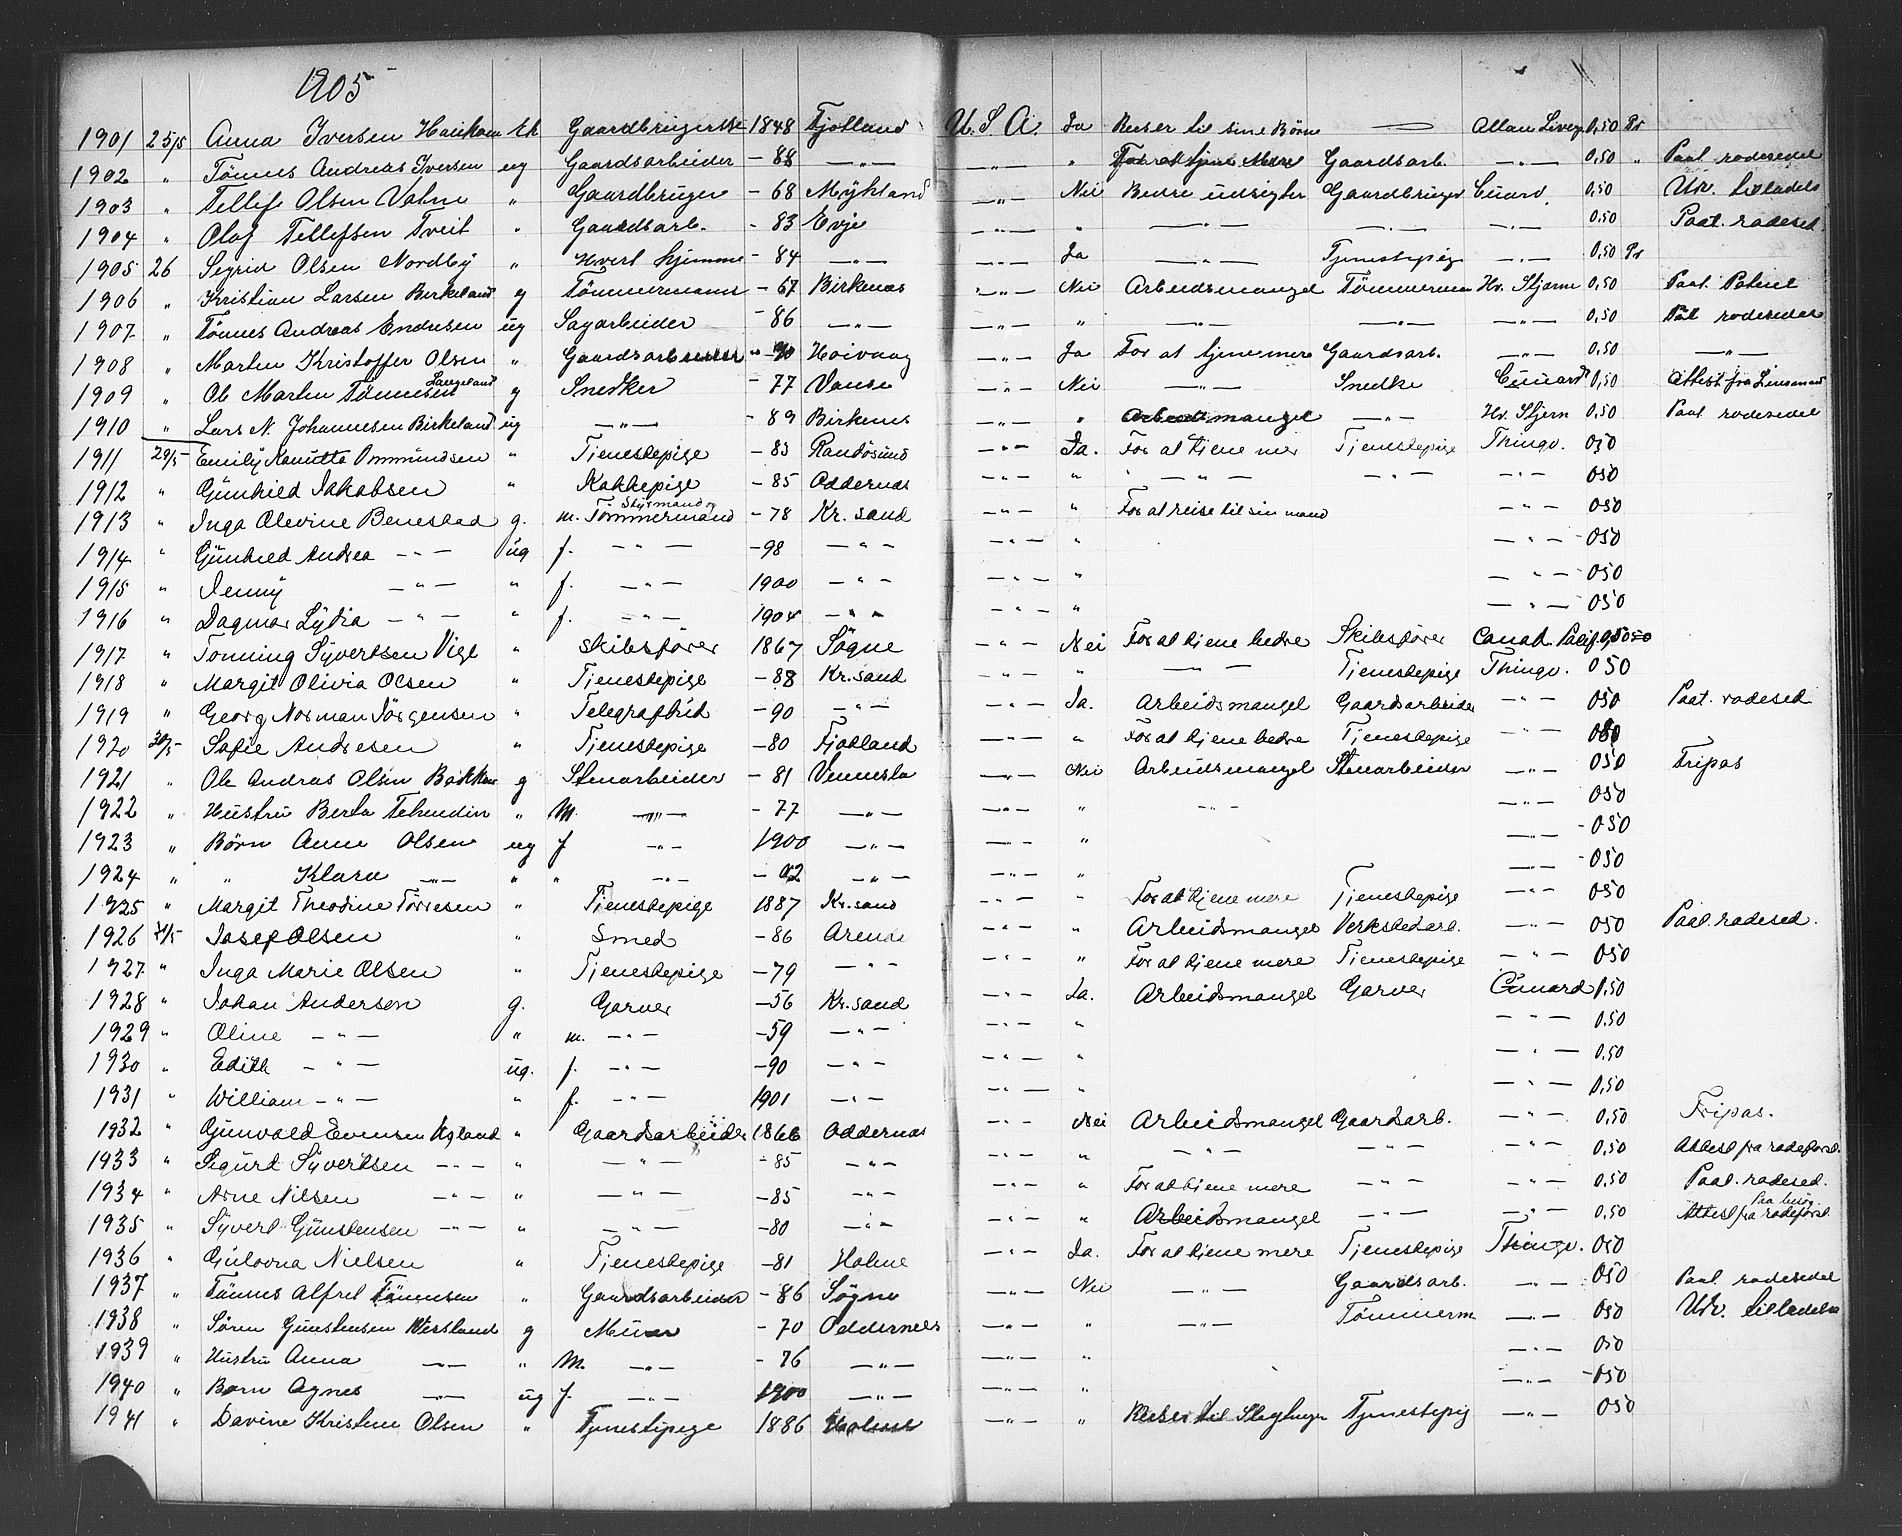 1905
1901 25/5 Anna Iversen Gaardbrugerske 1848 Fjotland U. S. A. Ja Reiser til sine Børn — Allan Liverp 0,50 Pr
1902 " Tönnes Andreas Iversen ug Gaardsarbeider - 88 —"— —"— " For at tjene Mere Gaardsarb. —"— 0,50 " Paat. rodesedel
1903 " Tellef Olsen Valne " Gaardbruger - 68 Mykland —"— Nei Bedre udsigter Gaardbruger Cunard. 0,50 Udv. tilladels
1904 " Olaf Tellefsen Tveit " Gaardsarb. - 83 Evje —"— " —"— —"— —"— 0,50 Paat. rodesed.
1905 26 Sigrid Olsen Nordby " Hvert hjemme - 84 —"— —"— Ja —"— Tjenestepige —"— 0,50 Pr
1906 " Kristian Larsen Birkeland g Tömmermann - 67 Birkenes —"— Nei Arbeidsmangel Tömmerman Hv. Stjerne 0,50 Paat. Patent
1907 " Tönnes Andreas Endresen ug Sagarbeider - 86 —"— —"— " —"— —"— —"— 0,50 Paat rodesedel
1908 " Martin Kristoffer Olsen " Gaardsarbeider " - 90 Høivaag —"— Ja For at tjene mere Gaardsarb. —"— 0,50 —"—
1909 " Ole Martin Tönnesen Langeland g Snedker - 77 Vanse —"— Nei —"— Snedke Cunard 0,50 Attest fra Linsmand
1910 " Lars N. Johannesen Birkeland ug —"— - 89 Birkenes —"— " Arbeidsmangel —"— Hv. Stjern 0,50 Paat rodesedel
1911 29/5 Emily Kanutta Ommundsen " Tjenestepige - 83 Randösund —"— Ja. For at tjene mer Tjenestepige Thingv. 050
1912 " Günhild Jakobsen " Kokkepige - 85 Oddernes —"— " —"— —"— 050
1913 " Inga Olevine Benestad g. m. Styrmand og Tömmermand - 78 Kr. sand —"— " For at reise til sin mand —"— 050
1914 " Günhild Andrea —"— ug f. —"— - 98 —"— —"— " —"— 050
1915 " Jenny —"— " f. —"— 1900 —"— —"— " —"— 050
1916 " Dagmar Lydia —"— " f. —"— 1904 —"— —"— " —"— 050
1917 " Tönning Syvertsen Vige " Skibsfører 1867 Sögne —"— Nei For at tjene bedre Skibsfører Canad. Pacif.
1918 " Margit Olivia Olsen " Tjenestepige - 88 Kr.sand —"— " —"— Tjenestepige Thingv. 050
1919 " Georg Norman Jörgensen " - 90 —"— —"— Ja. Arbeidsmangel Gaardsarbeider —"— 050 Paat. rodesed
1920 30/5 Sofie Andresen " Tjenestepige - 80 Fjotland —"— " For at tjene bedre Tjenestepige —"— 050
1921 " Ole Andras Olsen Bakken g Stenarbeider - 81 Vennesla —"— Nei Arbeidsmangel Stenarbeider —"— 050 Fripas
1922 " Hustru Berta " M —"— - 77 —"— —"— " —"— —"— 050
1923 " Børn Anne Olsen ug f —"— 1900 —"— —"— " —"— - 050
1924 " " Klara —"— " " —"— - 02 —"— —"— " —"— - 050
1925 " Margit Theodine Törresen " Tjenestepige 1887 Kr.sand —"— " For at tjene mere Tjenestepige —"— 050
1926 31/5 Josef Olsen " Smed - 86 Arendal —"— " Arbeidsmangel Verkstedarb. —"— 050 Paat. rodesed.
1927 " Inga Marie Olsen " Tjenestepige - 79 —"— —"— " For at tjene mere Tjenestepige —"— 050
1928 " Johan Andersen g. Garver - 56 Kr.sand —"— Ja. Arbeidsmangel Garver Cunard 0,50
1929 " Oline —"— " m. —"— - 59 —"— —"— " —"— 0,50
1930 " Edith —"— ug. f. —"— - 90 —"— —"— " —"— 0,50
1931 " William —"— " f. —"— 1901 —"— —"— " —"— 0,50
1932 " Gunvald Evensen Kyland " Gaardsarbeider 1866 Oddernes Nei Arbeidsmangel Gaardsarb. —"— 0,50 Fripas.
1933 " Sigurd Syvertsen —"— " —"— - 85 —"— —"— " —"— —"— —"— 0,50 Attest fra rodeforst.
1934 " Arne Nilsen —"— " —"— - 85 —"— —"— " For at tjene mere —"— —"— 0,50 Paat. rodesed.
1935 " Syvert Günstensen —"— " —"— - 80 —"— —"— " Arbeidsmangel —"— —"— 0,50 Attest fra rodeforst.
1936 " Gulovna Nielsen " Tjenestepige - 81 Holme —"— Ja. For at tjene mere Tjenestepige Thingv. 050
1937 " Tönnes Alfret Tönnesen " Gaardsarbeider - 86 Søgne —"— Nei —"— Gaardsarb. —"— 050 Paat. rodesedel
1938 " Søren Gunstensen Vessland g Murer - 70 Oddernes —"— " —"— Tømmerm —"— 050 Udv. tilladelse
1939 " Hustru Anna —"— " M. —"— - 76 —"— —"— " —"— 050
1940 " Barn Agnes —"— ug f. —"— 1900 —"— —"— " —"— - 050
1941 " Davine Kristine Olsen " Tjenestepige 1886 —"— " Reiser til Slegtninger Tjenestepig —"— 050